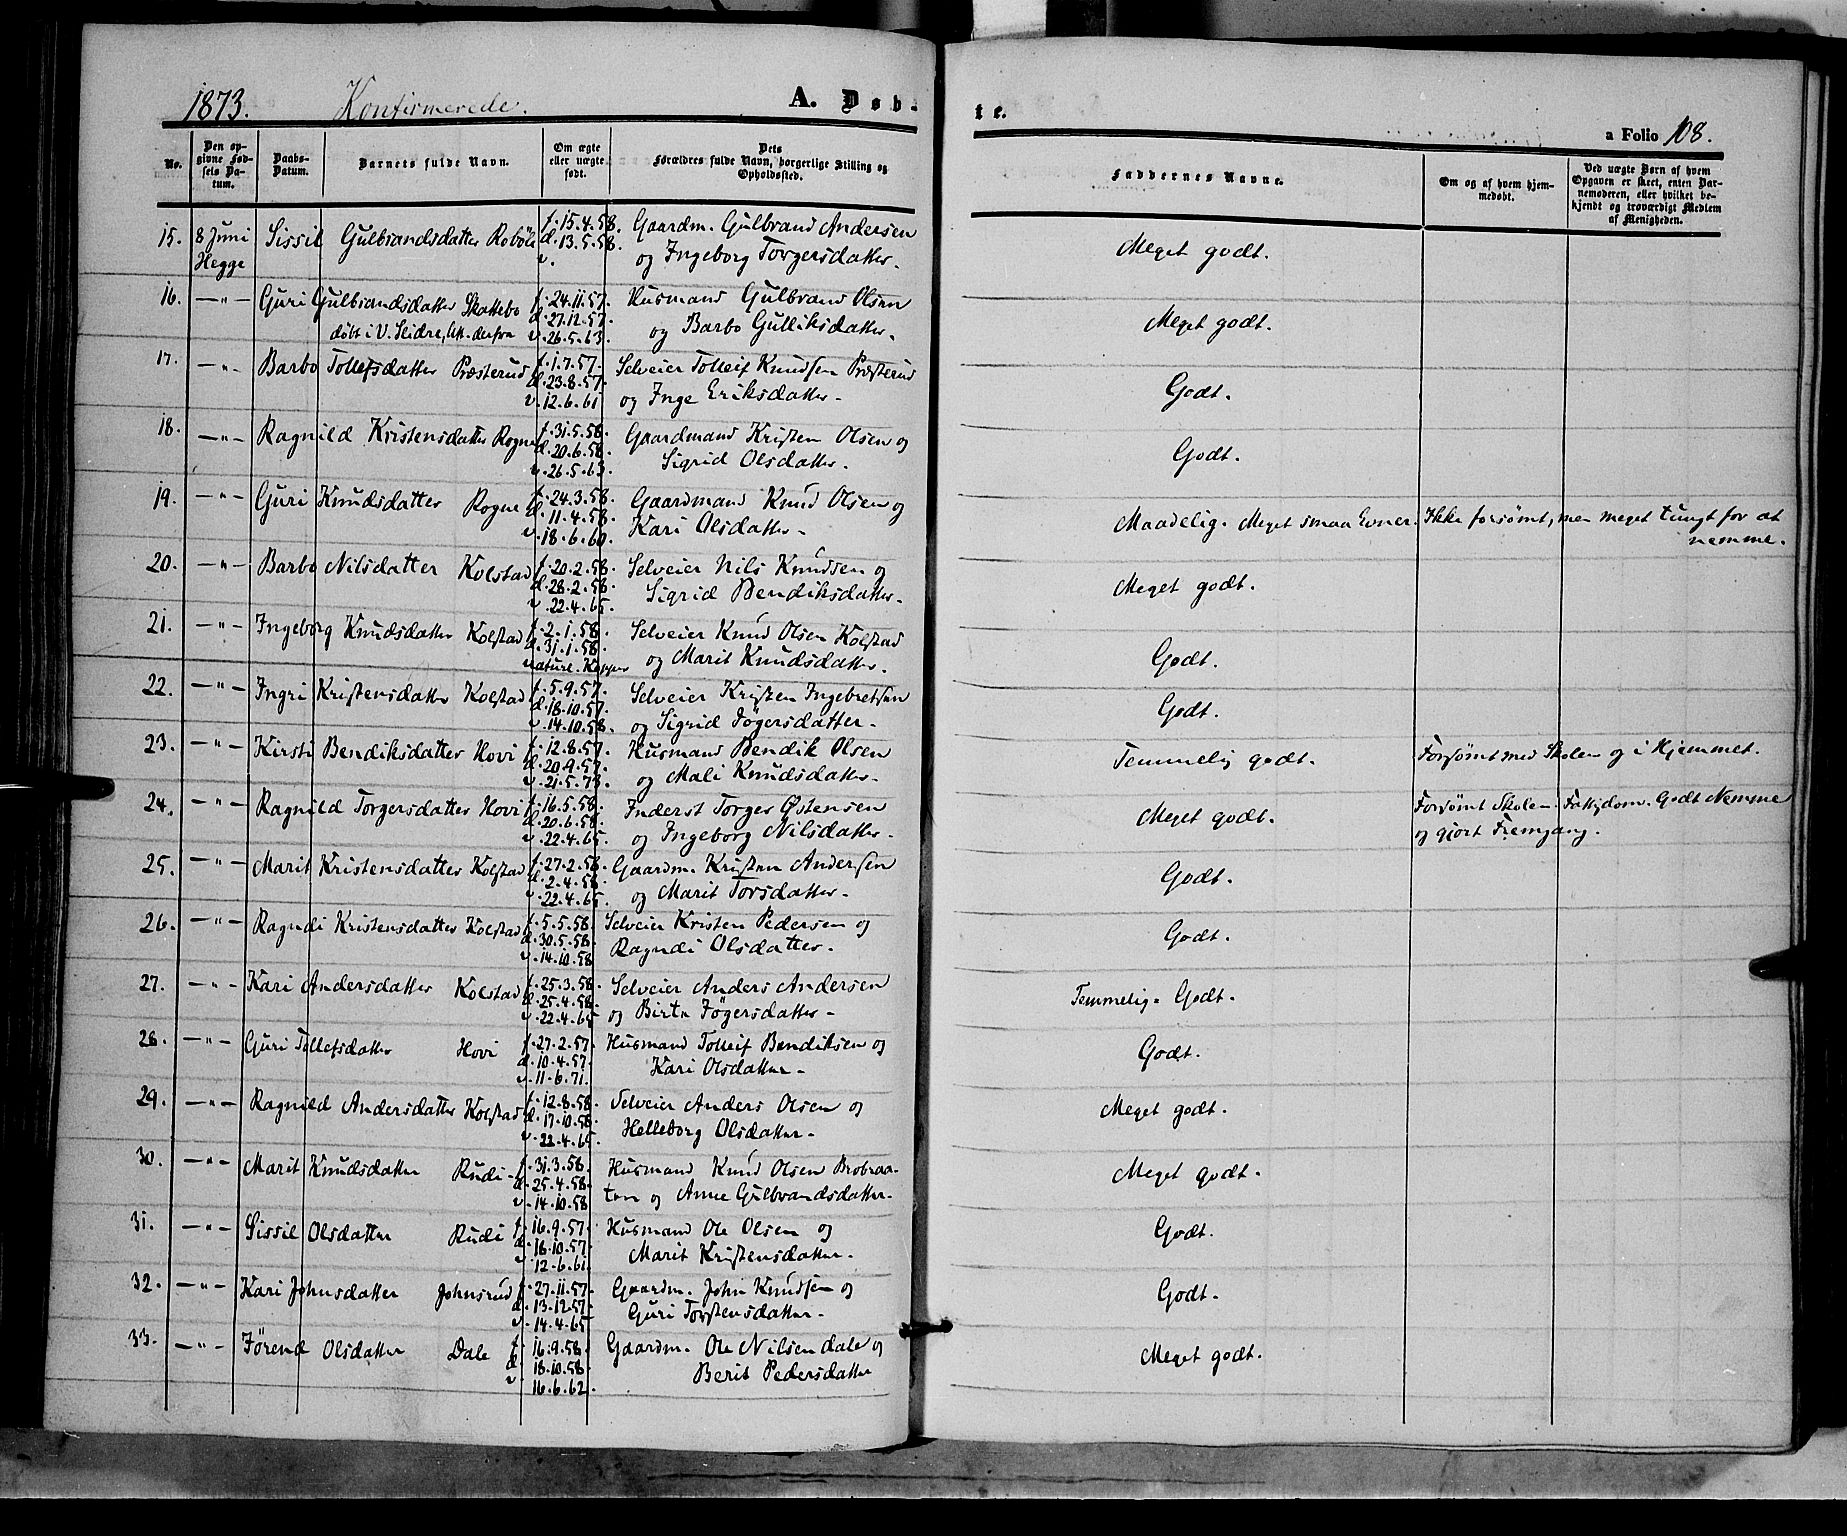 1873. Konfirmerede. A. Døb-
te.
a Folio 108.
No. Den opgivne Fødsels Datum. Daabs-Datum. Barnets fulde Navn. Om ægte eller uægte født. Dets Forældres fulde Navn, borgerlige Stilling og Opholdssted. Faddernes Navne. Om og af hvem hjemmedøbt. Ved uægte Børn af hvem Opgaven er skeet, enten Barnemoderen, eller hvilket bekjendt og troværdigt Medlem af Menigheden.
15. 8 Juni Sissil Gulbrandsdatter Robøle f. 15.4.58. Gaardm. Gulbrand Andersen
Hegge d. 13.5.58. og Ingeborg Torgersdatter. Meget godt.
v.
16. —"— Guri Gulbrandsdatter Skattebo f. 24.11.57. Husmand Gulbrand Olsen
døbt i V. Slidre, att. derfra d. 27.12.57. og Barbo Gulliksdatter. Meget godt.
v. 26.5.63.
17. —"— Barbo Tollefsdatter Præsterud f. 1.7.57. Selveier Tolleif Knudsen Præsterud
d. 23.8.57. og Inge Eriksdatter. Godt.
v. 12.6.61
18. —"— Ragnild Kristensdatter Rogne f. 31.5.58. Gaardmand Kristen Olsen og
d. 20.6.58. Sigrid Olsdatter. Godt.
v. 26.5.63.
19. —"— Guri Knudsdatter Rogne f. 24.3.58. Gaardmand Knud Olsen og
d. 11.4.58. Kari Olsdatter. Maadelig. Meget smaa Evner. Ikke forsømt, men meget tungt for at
v. 18.6.60. nemme.
20. —"— Barbo Nilsdatter Kolstad f. 20.2.58. Selveier Nils Knudsen og
d. 28.2.58. Sigrid Bendiksdatter. Meget godt.
v. 22.4.65.
21. —"— Ingeborg Knudsdatter Kolstad f. 2.1.58. Selveier Knud Olsen Kolstad
d. 31.1.58. og Marit Knudsdatter. Godt.
naturl. Kopper
22. —"— Ingri Kristensdatter Kolstad f. 5.9.57. Selveier Kristen Ingebretsen
d. 18.10.57. og Sigrid Jøgersdatter. Godt.
v. 14.10.58.
23. —"— Kirsti Bendiksdatter Hovi f. 12.8.57. Husmand Bendik Olsen
d. 20.9.57. og Mali Knudsdatter. Temmelig godt. Forsømt med Skolen og i Hjemmet.
v. 21.5.73.
24. —"— Ragnild Torgersdatter Hovi f. 16.5.58. Inderst Torger Østensen
d. 20.6.58. og Ingeborg Nilsdatter. Meget godt. Forsømt Skolen. Fattigdom. Godt Nemme
v. 22.4.65. og gjort Fremgang.
25. —"— Marit Kristensdatter Kolstad f. 27.2.58. Gaardm. Kristen Andersen
d. 2.4.58. og Marit Torsdatter. Godt.
v. 22.4.65.
26. —"— Ragndi Kristensdatter Kolstad f. 5.5.58. Selveier Kristen Pedersen og
d. 30.5.58. Ragndi Olsdatter. Godt.
v. 14.10.58
27. —"— Kari Andersdatter Kolstad f. 25.3.58. Selveier Anders Andersen
d. 25.4.58. og Birte Jøgersdatter. Temmelig Godt.
v. 22.4.65
28. —"— Guri Tollefsdatter Hovi f. 27.2.57. Husmand Tolleif Bendiksen og
d. 10.4.57. Kari Olsdatter. Godt.
v. 11.6.71.
29. —"— Ragnild Andersdatter Kolstad f. 12.8.58. Selveier Anders Olsen og
d. 17.10.58. Helleborg Olsdatter. Meget godt.
v. 22.4.65.
30. —"— Marit Knudsdatter Rudi f. 31.3.58. Husmand Knud Olsen Brobraa-
d. 25.4.58. ten og Anne Gulbrandsdatter. Meget godt.
v. 14.10.58
31. —"— Sissil Olsdatter Rudi f. 16.9.57. Husmand Ole Olsen og
d. 16.10.57. Marit Kristensdatter. Godt.
v. 12.6.61.
32. —"— Kari Johnsdatter Johnsrud f. 27.11.57. Gaardm. John Knudsen og
d. 13.12.57. Guri Torstensdatter. Godt.
v. 14.4.65
33. —"— Jørend Olsdatter Dale f. 16.9.58. Gaardm. Ole Nilsen dale og
d. 18.10.58. Berit Pedersdatter Meget godt.
v. 16.6.62.